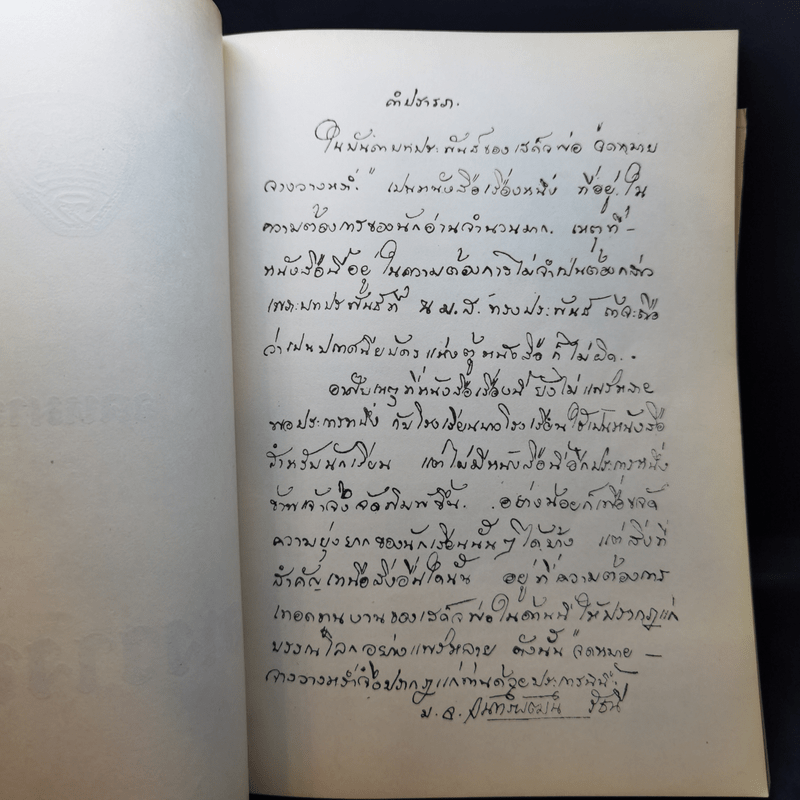 คำปรารภ.
ในบันดาบทประพันธ์ของเสด็จพ่อ "จดหมาย
จางวางหร่ำ." เปนหนังสือเรื่องหนึ่ง ที่อยู่ใน
ความต้องการของนักอ่านจำนวนมาก. เหตุที่ -
หนังสือนี้อยู่ในความต้องการไม่จำเป็นต้องกล่าว
เพราะบทประพันธ์ที่ น.ม.ส. ทรงประพันธ์ ถ้าจะถือ
ว่าเปน แห่งตู้หนังสือ ก็ไม่ผิด..
อาศัยเหตุที่หนังสือเรื่องนี้ ยังไม่แพร่หลาย
พอประการหนึ่ง กับโรงเรียนบางโรงเรียนใช้เป็นหนังสือ
สำหรับนักเรียน แต่ไม่มีหนังสือนี่อีกประการหนึ่ง
ข้าพเจ้าจึงจัดพิมพ์ขึ้น. อย่างน้อยก็เพื่อขจัด
ความยุ่งยากของนักเรียนนั้นๆได้บ้าง แต่สิ่งที่
สำคัญเหนือสิ่งอื่นใดนั้น อยู่ที่ความต้องการ
เทอดทานงานของเสด็จพ่อในด้านนี้ ให้ปรากฏแก่
บรรณโลกอย่างแพร่หลาย ดังนั้น "จดหมาย -
จางวางหร่ำจึงปรากฏแก่ท่านด้วยประการฉะนี้.
ม.จ. จันทร์พัฒน์ รัชนี